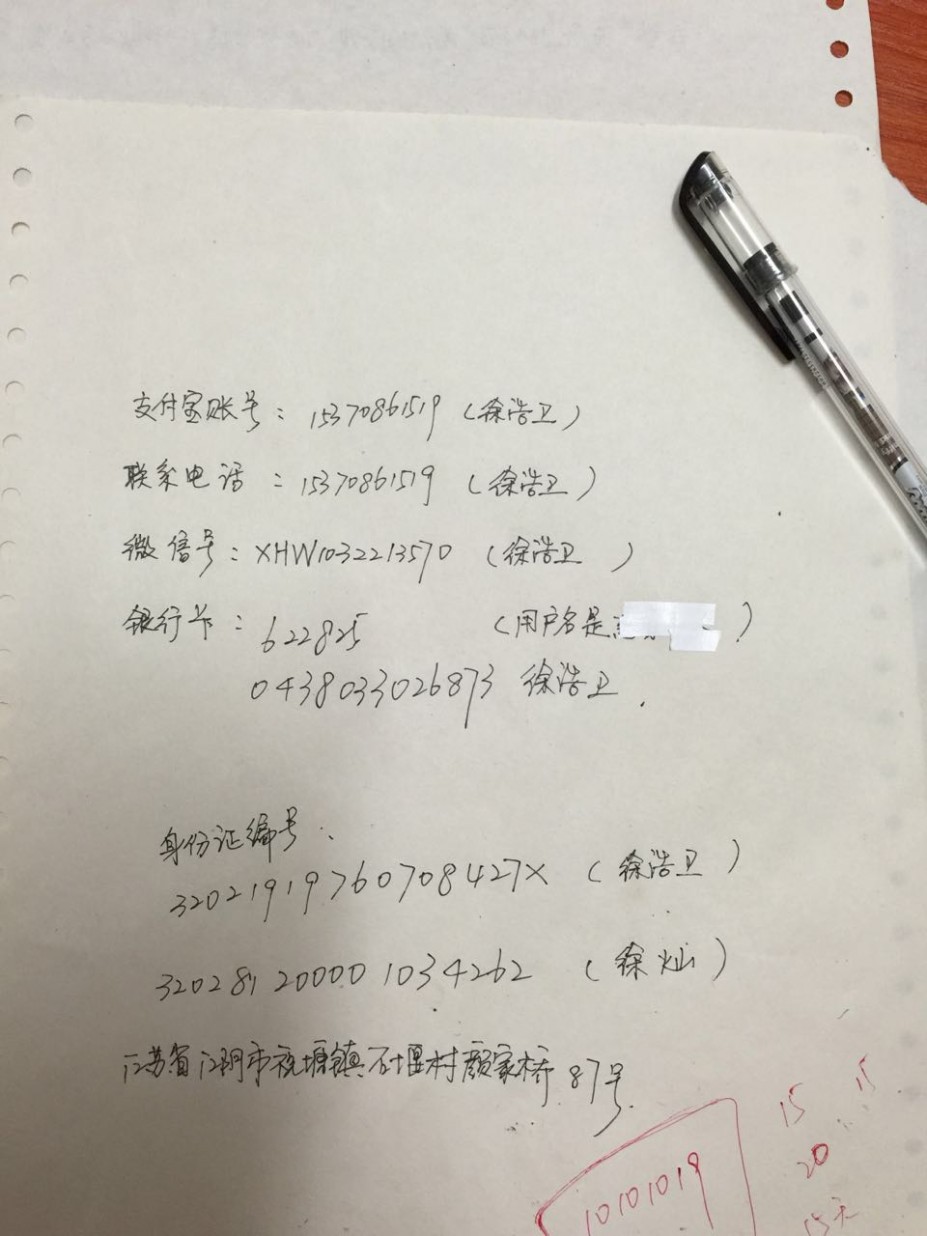 支付宝账号：15370861519（徐浩卫）
联系电话：15370861519（徐浩卫）
微信号：XHW1032213570（徐浩卫）
银行卡：622825（用户名是）
0438033026873 徐浩卫.
身份证编号：
32021919760708427X（徐浩卫）
320281200001034262（徐灿）
江苏省江阴市祝塘镇石堰村颜家桥87号.
15 15
20
10101019
15天